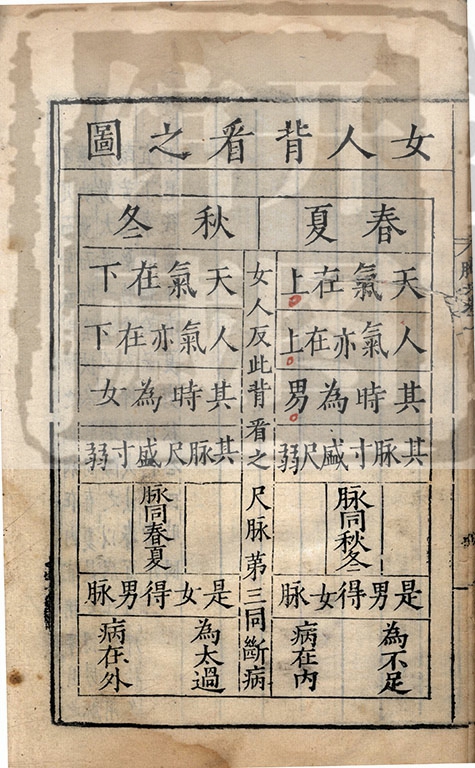 女人背看之圖
春夏
天氣在上
人氣亦在上
其時為男
其脉寸盛尺弱
脉同秋冬
是男得女脉
為不足
病在内
女人反此背看之
尺脉第三同斷病
秋冬
天氣在下
人氣亦在下
其時為女
其脉尺盛寸弱
脉同春夏
是女得男脉
為太過
病在外